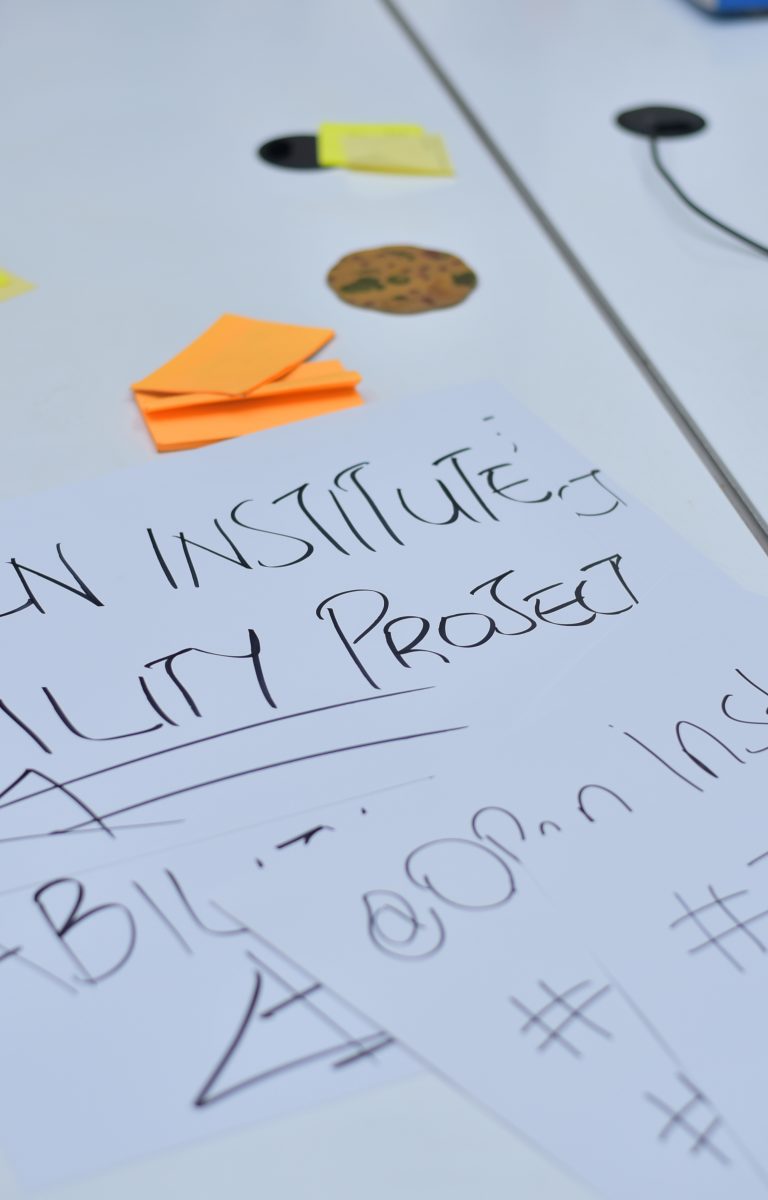 INSTITUTE
ILITY PROJECT
ABILI
@Open Inst
#
#
#